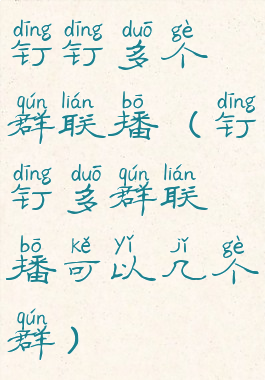 dīng dīng duō gè
钉钉多个
qún lián bō dīng
群联播（钉
dīng duō qún lián
钉多群联
bō kě yǐ jǐ gè
播可以几个
qún
群）